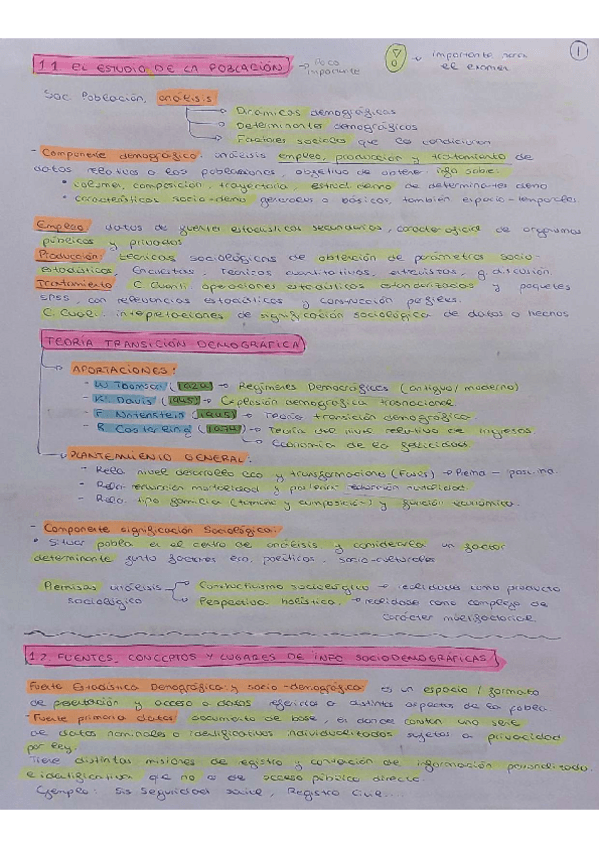 1.1 EL ESTUDIO DE LA POBLACIÓN → Poco importante
→ importante para el examen
1
Soc. Población, análisis
→ Dinámicas demográficas
→ Determinantes demográficos
→ Factores sociales que las condicionan
- Componente demográfico: análisis empleo, producción y tratamiento de
datos relativos a las poblaciones, objetivo de obtener info sobre:
• volume, composición, trayectoria, de determinantes demo
• características socio-demo generales o básicos, también espacio-temporales
Empleo: datos de fuentes estadísticas secundarias, carácter oficial de organismos
públicos y privados
Producción: técnicas sociológicas de obtención de parámetros socio-
estadísticos, Encuestas, Técnicos cuantitativos, entrevistas, g. discusión
Tratamiento: C. Cuanti. operaciones estadísticas estandarizadas y paquetes
SPSS, con relevancias estadísticas y construcción perfiles.
C. Cuali. interpretaciones de significación sociológica de datos o hechos
TEORÍA TRANSICIÓN DEMOGRÁFICA
→ APORTACIONES:
- W. Thomson (1929) → Regímenes Demográficos (antiguo/moderno)
- K. Davis (1945) → Explosión demográfica
- F. Notenstein (1945) → Teoría transición demográfica
- R. (1974) → Teoría del nivel relativo de ingresos
→ Economía de la
→ PLANTEAMIENTO GENERAL:
- Rela. nivel desarrollo eco y transformaciones (Fases) →
- Rela. reducción mortalidad y posterior reducción natalidad
- Rela. tipo familia (tamaño y composición) y función económica.
- Componente significación Sociológica:
• Situar pobla. en el centro de análisis y considerarla un factor
determinante junto factores eco, políticos, socio-culturales
Premisas análisis sociológico
→ Constructivismo sociológico → realidades como producto
→ Perspectiva holística. → realidade como complejo de
carácter multifactorial
1.2 FUENTES, CONCEPTOS Y LUGARES DE INFO SOCIODEMOGRÁFICAS
Fuente Estadística Demográfica y socio-demográfica es un espacio / formato
de presentación y acceso a datos referidos a distintos aspectos de la pobla
- Fuente primaria datos: documento de base, es donde constan una serie
de datos nominales o identificativos individualizados sujetos a privacidad
por ley.
Tiene distintas misiones de registro y de información personalizada
e identificativa que no a de acceso público directo.
Ejemplo: Sis Seguridad social, Registro Civil....